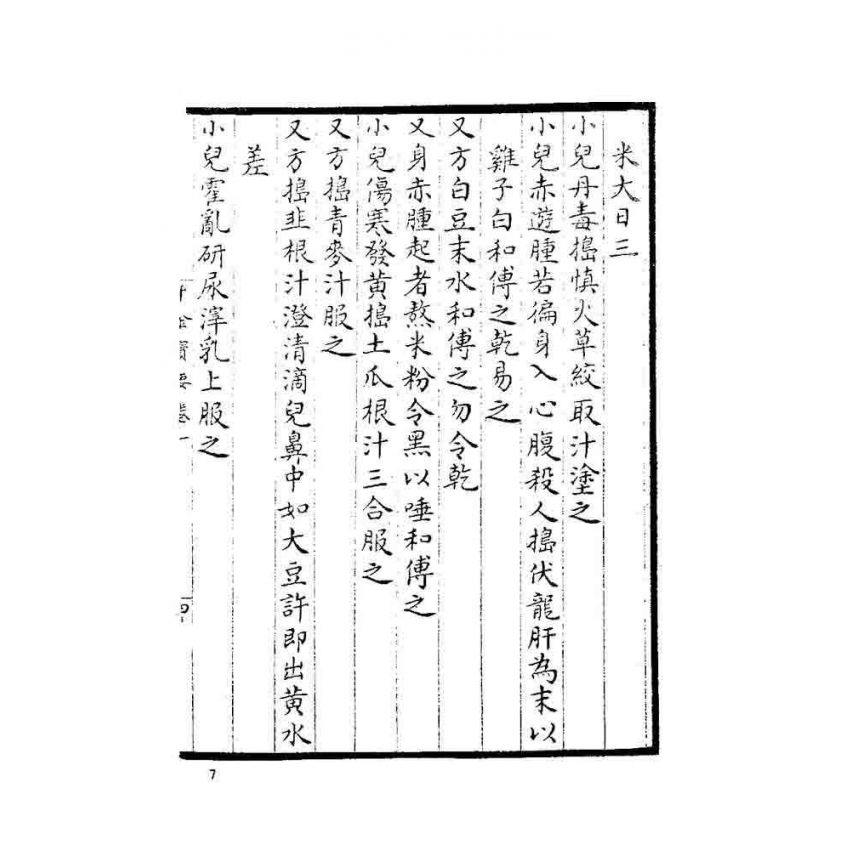 米大日三
小兒丹毒搗慎火草絞取汁塗之
小兒赤遊腫若徧身入心腹殺人搗伏龍肝為末以
雞子白和傅之乾易之
又方白豆末水和傅之勿令乾
又身赤腫起者熬米粉令黑以唾和傅之
小兒傷寒發黃搗土瓜根汁三合服之
又方搗青麥汁服之
又方搗韭根汁澄清滴兒鼻中如大豆許即出黃水
差
小兒霍亂研尿滓乳上服之
7